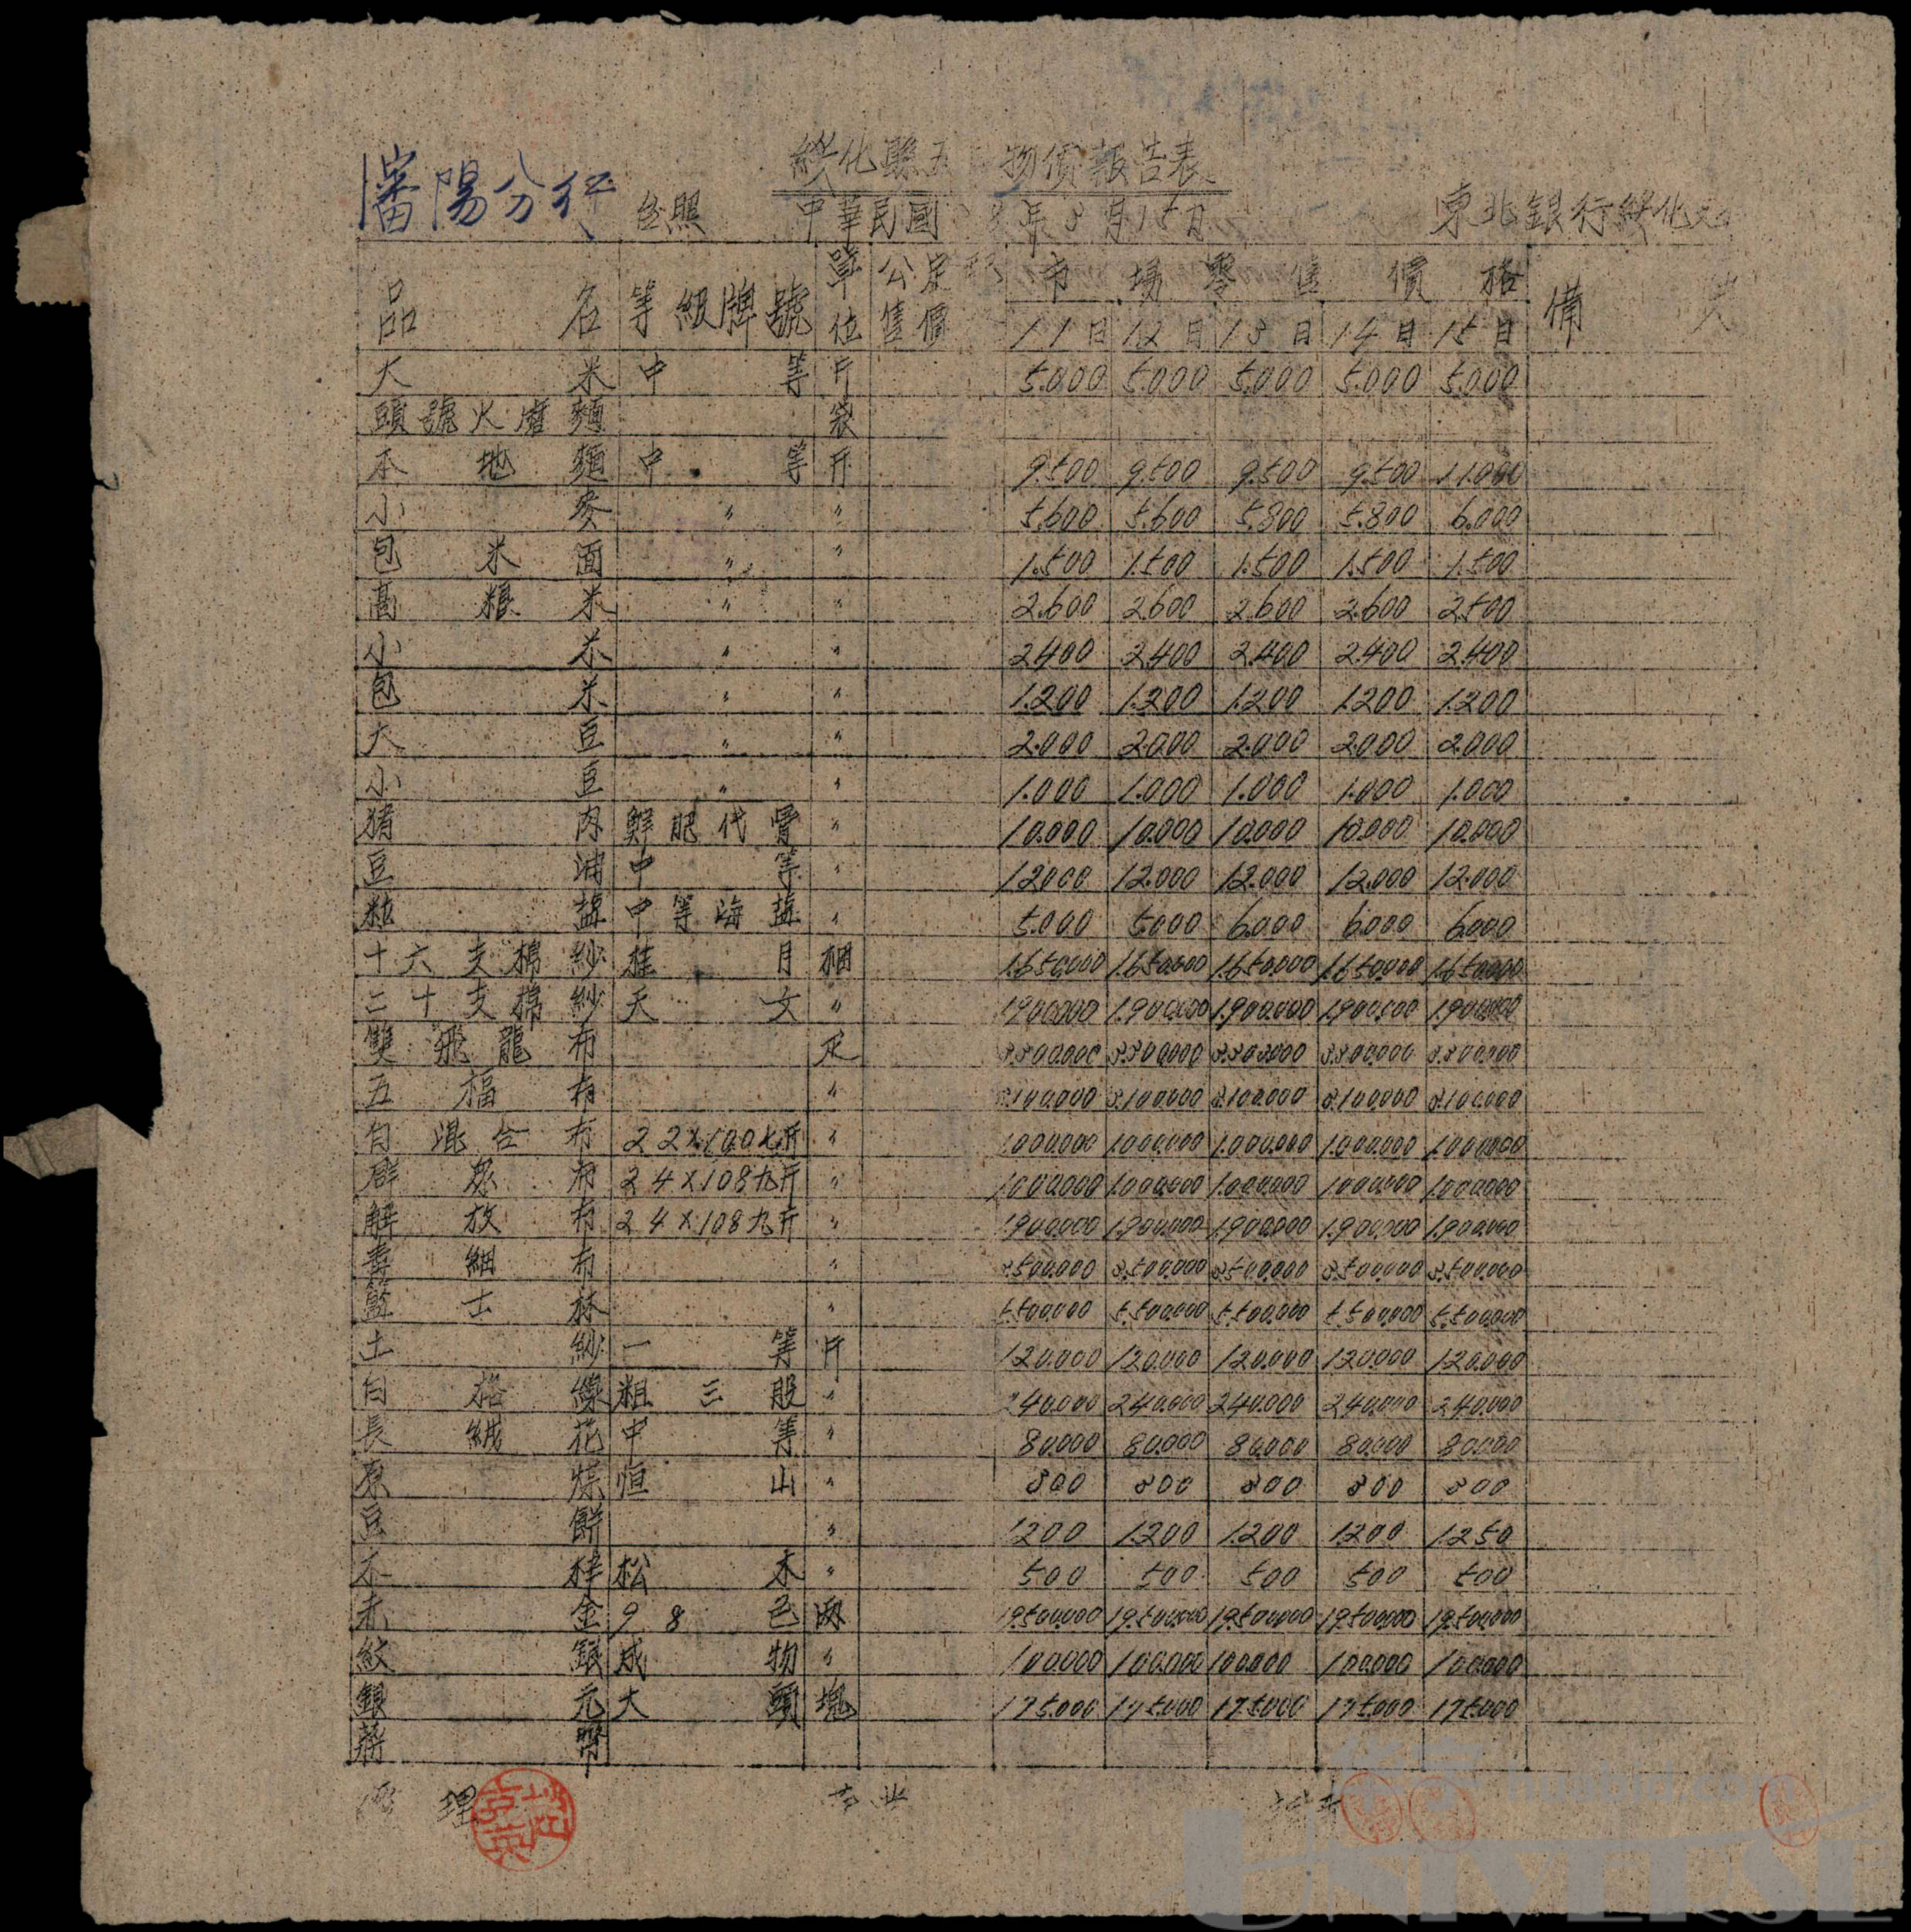 瀋陽分行 台照
綏化縣五 物價報告表
中華民國 年8月15日
東北銀行綏化支
品名 等級牌號 單位 公定 售價 市場零售價格 備
11日 12日 13日 14日 15日
大米 中等 斤 5.000 5.000 5.000 5.000 5.000
頭號火磨麵 袋
本地麵 中等 斤 9.500 9.500 9.500 9.500 11.000
小麥 〃 〃 5.600 5.600 5.800 5.800 6.000
包米面 〃 〃 1.500 1.500 1.500 1.500 1.500
高粮米 〃 〃 2.600 2.600 2.600 2.600 2.500
小米 〃 〃 2.400 2.400 2.400 2.400 2.400
包米 〃 〃 1.200 1.200 1.200 1.200 1.200
大豆 〃 〃 2.000 2.000 2.000 2.000 2.000
小豆 〃 〃 1.000 1.000 1.000 1.000 1.000
猪肉 鮮肥代骨 〃 10.000 10.000 10.000 10.000 10.000
豆油 中等 〃 12.000 12.000 12.000 12.000 12.000
粒塩 中等海塩 〃 5.000 5.000 6.000 6.000 6.000
十六支棉紗 桂月 捆 1.650.000 1.650.000 1.650.000 1.650.000 1.650.000
二十支棉紗 天女 〃 1.900.000 1.900.000 1.900.000 1.900.000 1.900.000
雙飛龍布 疋
五福布 〃
白混合布 22×100 斤 〃 1.000.000 1.000.000 1.000.000 1.000.000 1.000.000
布 24×108九斤 〃 1.000.000 1.000.000 1.000.000 1.000.000 1.000.000
解放布 24×108九斤 〃 1.900.000 1.900.000 1.900.000 1.900.000 1.900.000
細布 〃
藍士林 〃 5.500.000 5.500.000 5.500.000 5.500.000 5.500.000
土紗 一等 斤 120.000 120.000 120.000 120.000 120.000
白 線 粗三股 〃 240.000 240.000 240.000 240.000 240.000
長絨花 中等 〃 80.000 80.000 80.000 80.000 80.000
原煤 恒山 〃
豆餅 〃 1.200 1.200 1.200 1.200 1.250
木柈 松木 〃 500 500 500 500 500
赤金 98色 両 19.500.000 19.500.000 19.500.000 19.500.000 19.500.000
紋銀 成物 〃 100.000 100.000 100.000 100.000 100.000
銀元 大頭 塊 175.000 175.000 175.000 175.000 175.000
蔣幣
理
UNIVERSE